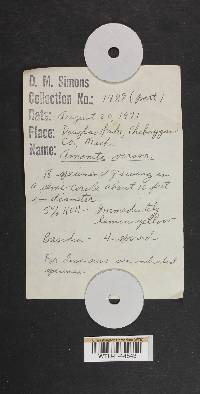 D. M. Simons
Collection No.: 1988 (part)
Date: August 20, 1971
Place: Douglas Lake, Cheboygan
Co., Mich.
Name: Amanita virosa
specimens growing in
a semi-circle about 15 feet
in diameter
5% KOH - Immediately
lemon yellow
Basidia - 4-spored
For individual
specimens